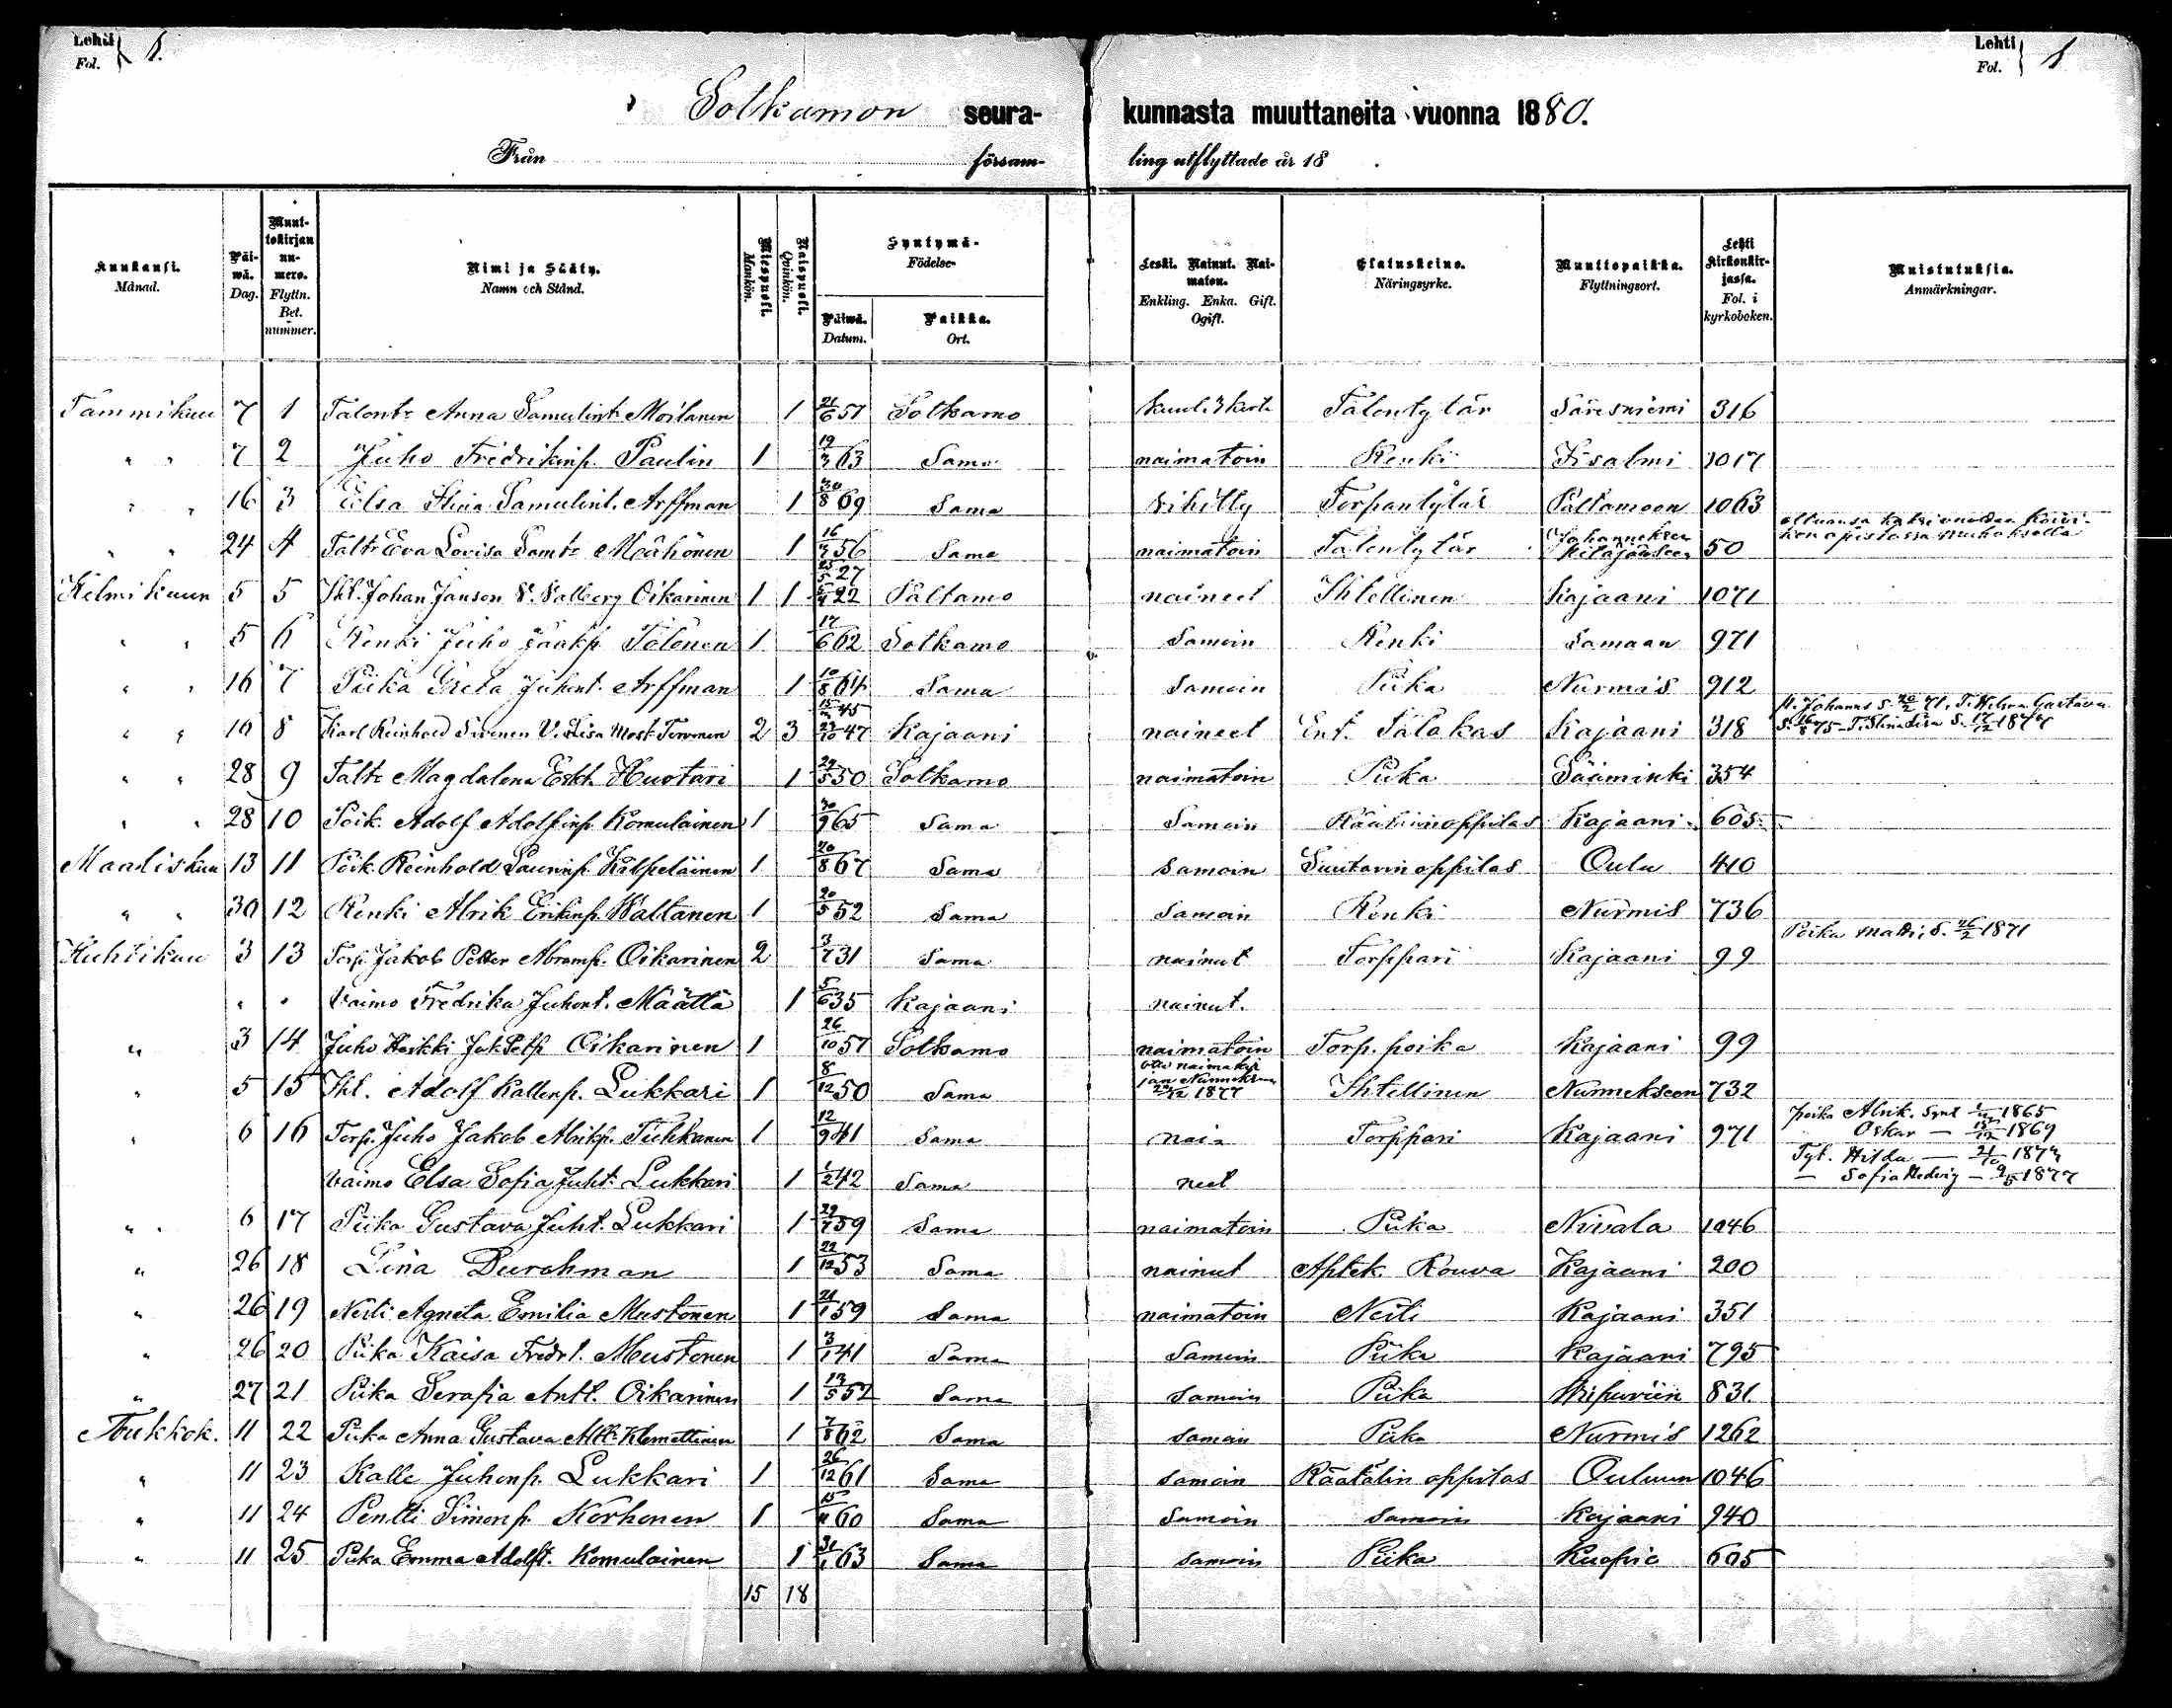 Lehti Fol. } 1.
Lehti Fol. } 1
Sotkamon seura- kunnasta muuttaneita vuonna 1880.
Från försam- ling utflyttade år 18 .
Kuukausi. Månad.
Päi-wä. Dag.
Muut-tokirjan nu-mero. Flyttn. Bet. nummer.
Nimi ja Sääty. Namn och Stånd.
Miespuoli. Mankön.
Naispuoli. Qvinkön.
Syntymä- Födelse-
Päiwä. Datum.
Paikka. Ort.
Leski. Nainut. Nai-maton. Enkling. Enka. Gift. Ogift.
Elatuskeino. Näringsyrke.
Muuttopaikka. Flyttningsort.
Lehti kirkonkir-jassa. Fol. i kyrkoboken.
Muistutuksia. Anmärkningar.
Tammikuu 7 1 Talontr Anna Samulint. Moilanen 1 21/6 51 Sotkamo kuul. 3 kert. Talontytär Säresniemi 316
" " 7 2 Juho Fridrikinp. Paulin 1 19/3 63 Sama naimatoin Renki Iisalmi 1017
" " 16 3 Elsa Stina Samulint. Arffman 1 30/8 69 Sama vihitty Torpantytär Paltamoon 1063
" " 24 4 Taltr Eva Lovisa Samtr Määhönen 1 16/3 56 Sama naimatoin Talontytär Johanneksen pitäjääseen 50
Helmikuun 5 5 Ihl. Johan Janson V. Valberg Oikarinen 1 1 25/5 27 22 Paltamo naineet Ihtellinen Kajaani 1071
" " 5 6 Renki Juho Jaakp. Tolonen 1 17/6 62 Sotkamo Samoin Renki Samaan 971
" " 16 7 Piika Greta Juhont. Arffman 1 10/8 64 Sama Samoin Piika Nurmis 912
" " 16 8 Karl Reinhold Sirenen V. Lisa Mart. Tervonen 2 3 45 47 Kajaani naineet Ent. Talokas Kajaani 318 Johanns s. 20/2 71, T. Hilma Gustava
s. 16/8 75 - T. Stina Lisa s. 17/12 1877
" " 28 9 Taltr Magdalena Erkt. Huotari 1 29/5 50 Sotkamo naimatoin Piika Sääminki 354
" " 28 10 Poik. Adolf Adolfinp. Komulainen 1 30/9 65 Sama Samoin Räätälinoppilas Kajaani 605
Maaliskuu 13 11 Poik. Reinhold Laurinp. Kilpeläinen 1 20/8 67 Sama Samoin Suutarin oppilas Oulu 410
" " 30 12 Renki Alrik Erikinp. Waltanen 1 20/5 52 Sama Samoin Renki Nurmis 736
Huhtikuu 3 13 Torp. Jakob Petter Abramp. Oikarinen 2 3/7 31 Sama nainut Torppari Kajaani 99 Poika Matti, s. 26/2 1871
" " Vaimo Fredrika Juhont. Määttä 1 5/6 35 Kajaani nainut.
" 3 14 Juho Heikki Jak Petp Oikarinen 1 26/10 57 Sotkamo naimatoin Torp. poika Kajaani 99
" 5 15 Ihl. Adolf Kallenp. Lukkari 1 8/12 50 Sama 1877 Ihtellinen Nurmekseen 732
" 6 16 Torp. Juho Jakob Alrikp. Tiihkanen 1 12/9 41 Sama nai- Torppari Kajaani 971 poika Alrik. synt 1865
Oskar — 1869
Vaimo Elsa Sofia Juht. Lukkari 1 1/2 42 Sama neet Tyt. Hilda — 21/10 1873
— Sofia Hedvig — 9/5 1877
" " 6 17 Piika Gustava Juht. Lukkari 1 29/7 59 Sama naimatoin Piika Nivala 1046
" 26 18 Lina Durchman 1 22/12 53 Sama nainut Aptek. Rouva Kajaani 200
" 26 19 Neiti Agneta Emilia Mustonen 1 21/1 59 Sama naimatoin Neiti Kajaani 351
" 26 20 Piika Kaisa Fredr t. Mustonen 1 3/1 41 Sama Samoin Piika Kajaani 795
" 27 21 Piika Serafia Antt. Oikarinen 1 13/5 52 Sama samoin Piika Wiipuriin 831
Toukkok. 11 22 Piika Anna Gustava Mtt. Klemettinen 1 7/8 62 Sama samoin Piika Nurmis 1262
" 11 23 Kalle Juhonp. Lukkari 1 26/12 61 Sama samoin Räätälin oppilas Ouluun 1046
" 11 24 Pentti Simonp. Korhonen 1 15/11 60 Sama Samoin samoin Kajaani 940
" 11 25 Piika Emma Adolft. Komulainen 1 31/1 63 Sama samoin Piika Kuopio 605
15 18